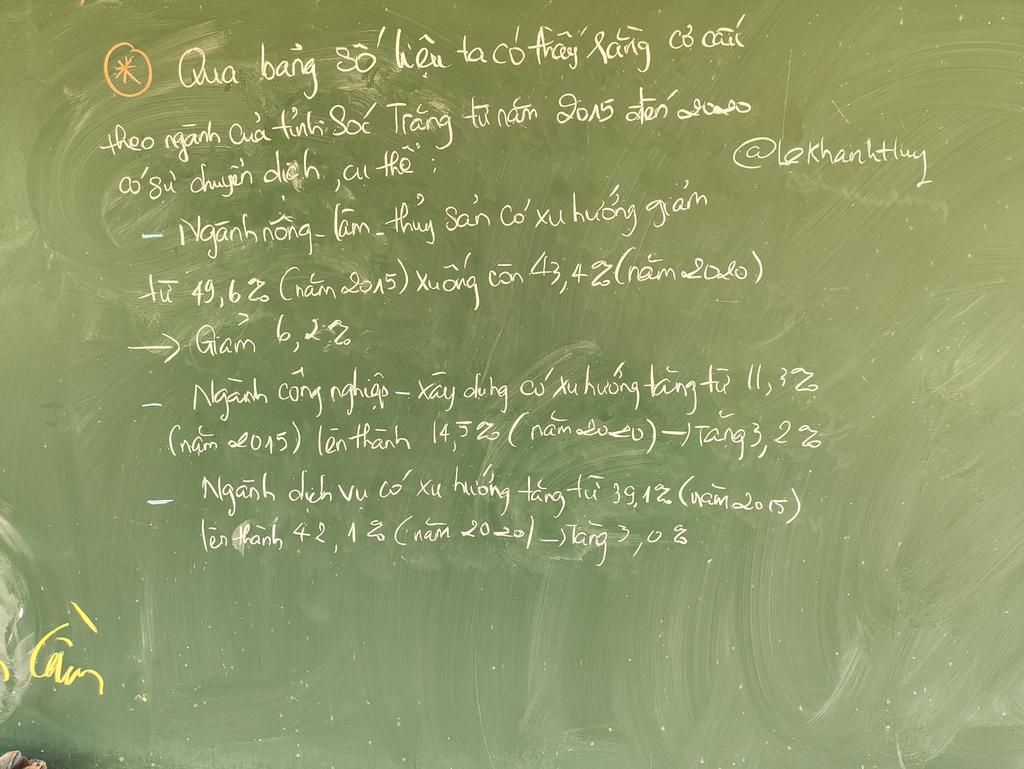 Qua bảng số liệu ta có thấy rằng cơ cấu
theo ngành của tỉnh Sóc Trăng từ năm 2015 đến 2020
có sự chuyển dịch, cụ thể:
@LeKhanhthuy
- Ngành nông - lâm - thủy sản có xu hướng giảm
từ 49,6% (năm 2015) xuống còn 43,4% (năm 2020)
→ Giảm 6,2%
- Ngành công nghiệp - xây dựng có xu hướng tăng từ 11,3%
(năm 2015) lên thành 14,5% (năm 2020) → Tăng 3,2%
- Ngành dịch vụ có xu hướng tăng từ 39,1% (năm 2015)
lên thành 42,1% (năm 2020) → Tăng 3,0%